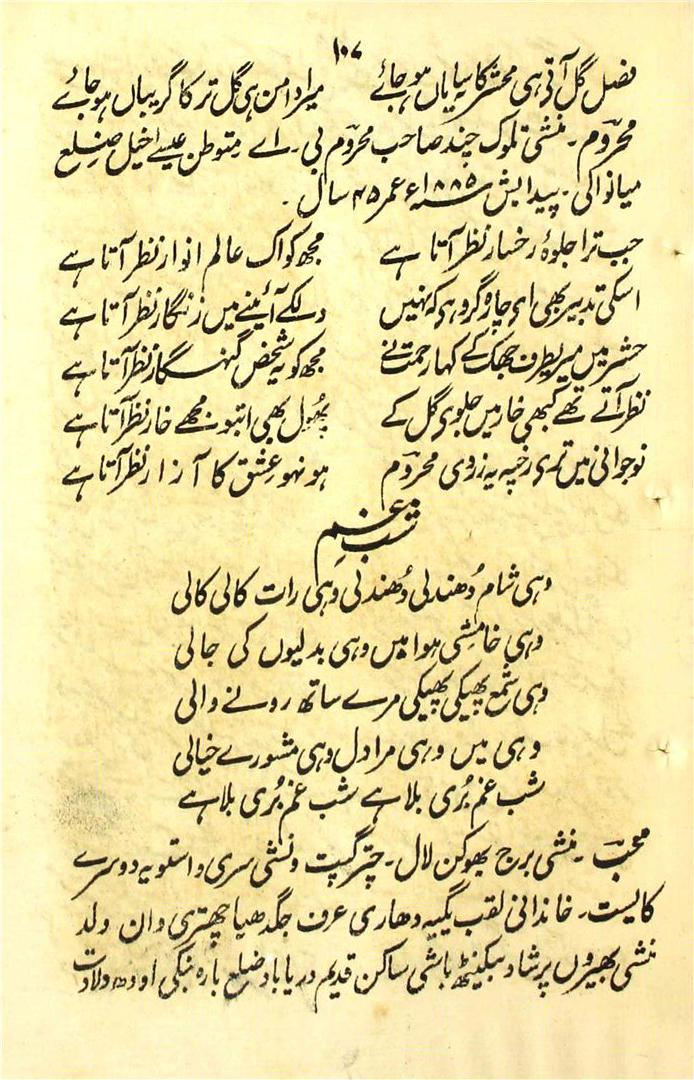 ۱۰۷
فصل گل آتی ہی محشر کا سا ساماں ہو جائے میرا دامن ہی گل تر کا گریباں ہو جائے
محروم ۔ منشی تلوک چند صاحب محروم بی۔ اے متوطن عیسےٰ خیل ضلع
میانوالی ۔ پیدایش ۱۸۸۵ء عمر ۴۵ سال ۔
جب ترا جلوۂ رخسار نظر آتا ہے مجھ کو اک عالم انوار نظر آتا ہے
اسکی تدبیر بھی ای چارہ گرو ہی کہ نہیں دلکے آئینے میں زنگار نظر آتا ہے
حشر میں میریطرف جھک کے کہا رحمت نے مجھ کو یہ شخص گنہگار نظر آتا ہے
نظر آتے تھے کبھی خار میں جلوی گل کے پھول بھی ابتو مجھے خار نظر آتا ہے
نوجوانی میں تری رخپہ یہ زردی محروم ہو نہو عشق کا آزار نظر آتا ہے
شب غم
وہی شام دُھندلی دُھندلی وہی رات کالی کالی
وہی خامشی ہوا میں وہی بدلیوں کی جالی
وہی شمع پھیکی پھیکی مرے ساتھ رونے والی
وہی میں وہی مرا دل وہی مشورے خیالی
شب غم بُری بلا ہے شب غم بُری بلا ہے
محب ۔ منشی برج بھوکن لال ۔ چتر گپت ونشی سری واستویہ دوسرے
کایست ۔ خاندانی لقب یگیہ دھاری عرف جگدھیا چھتری وان ولد
منشی بھیروں پرشاد بیکنٹھ باشی ساکن قدیم دریاباد ضلع بارہ بنکی اودھ ولادت